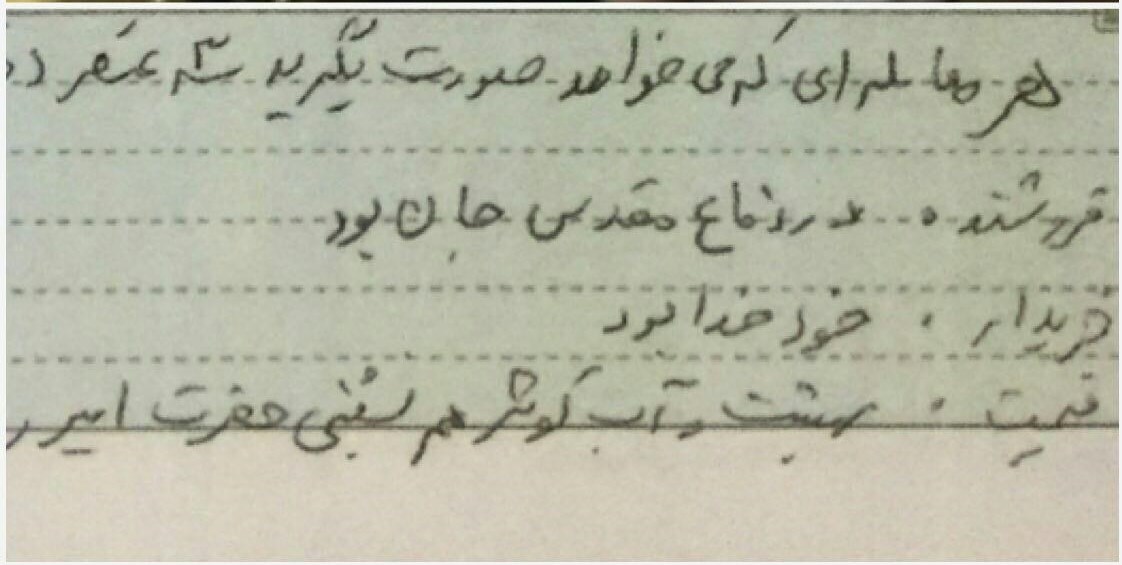 هر معامله ای که می خواهد صورت بگیرد سه عنصر دارد
فروشنده . در دفاع مقدس جان بود
خریدار . خود خدا بود
قیمت . بهشت و آب کوثر هم نشینی حضرت امیر